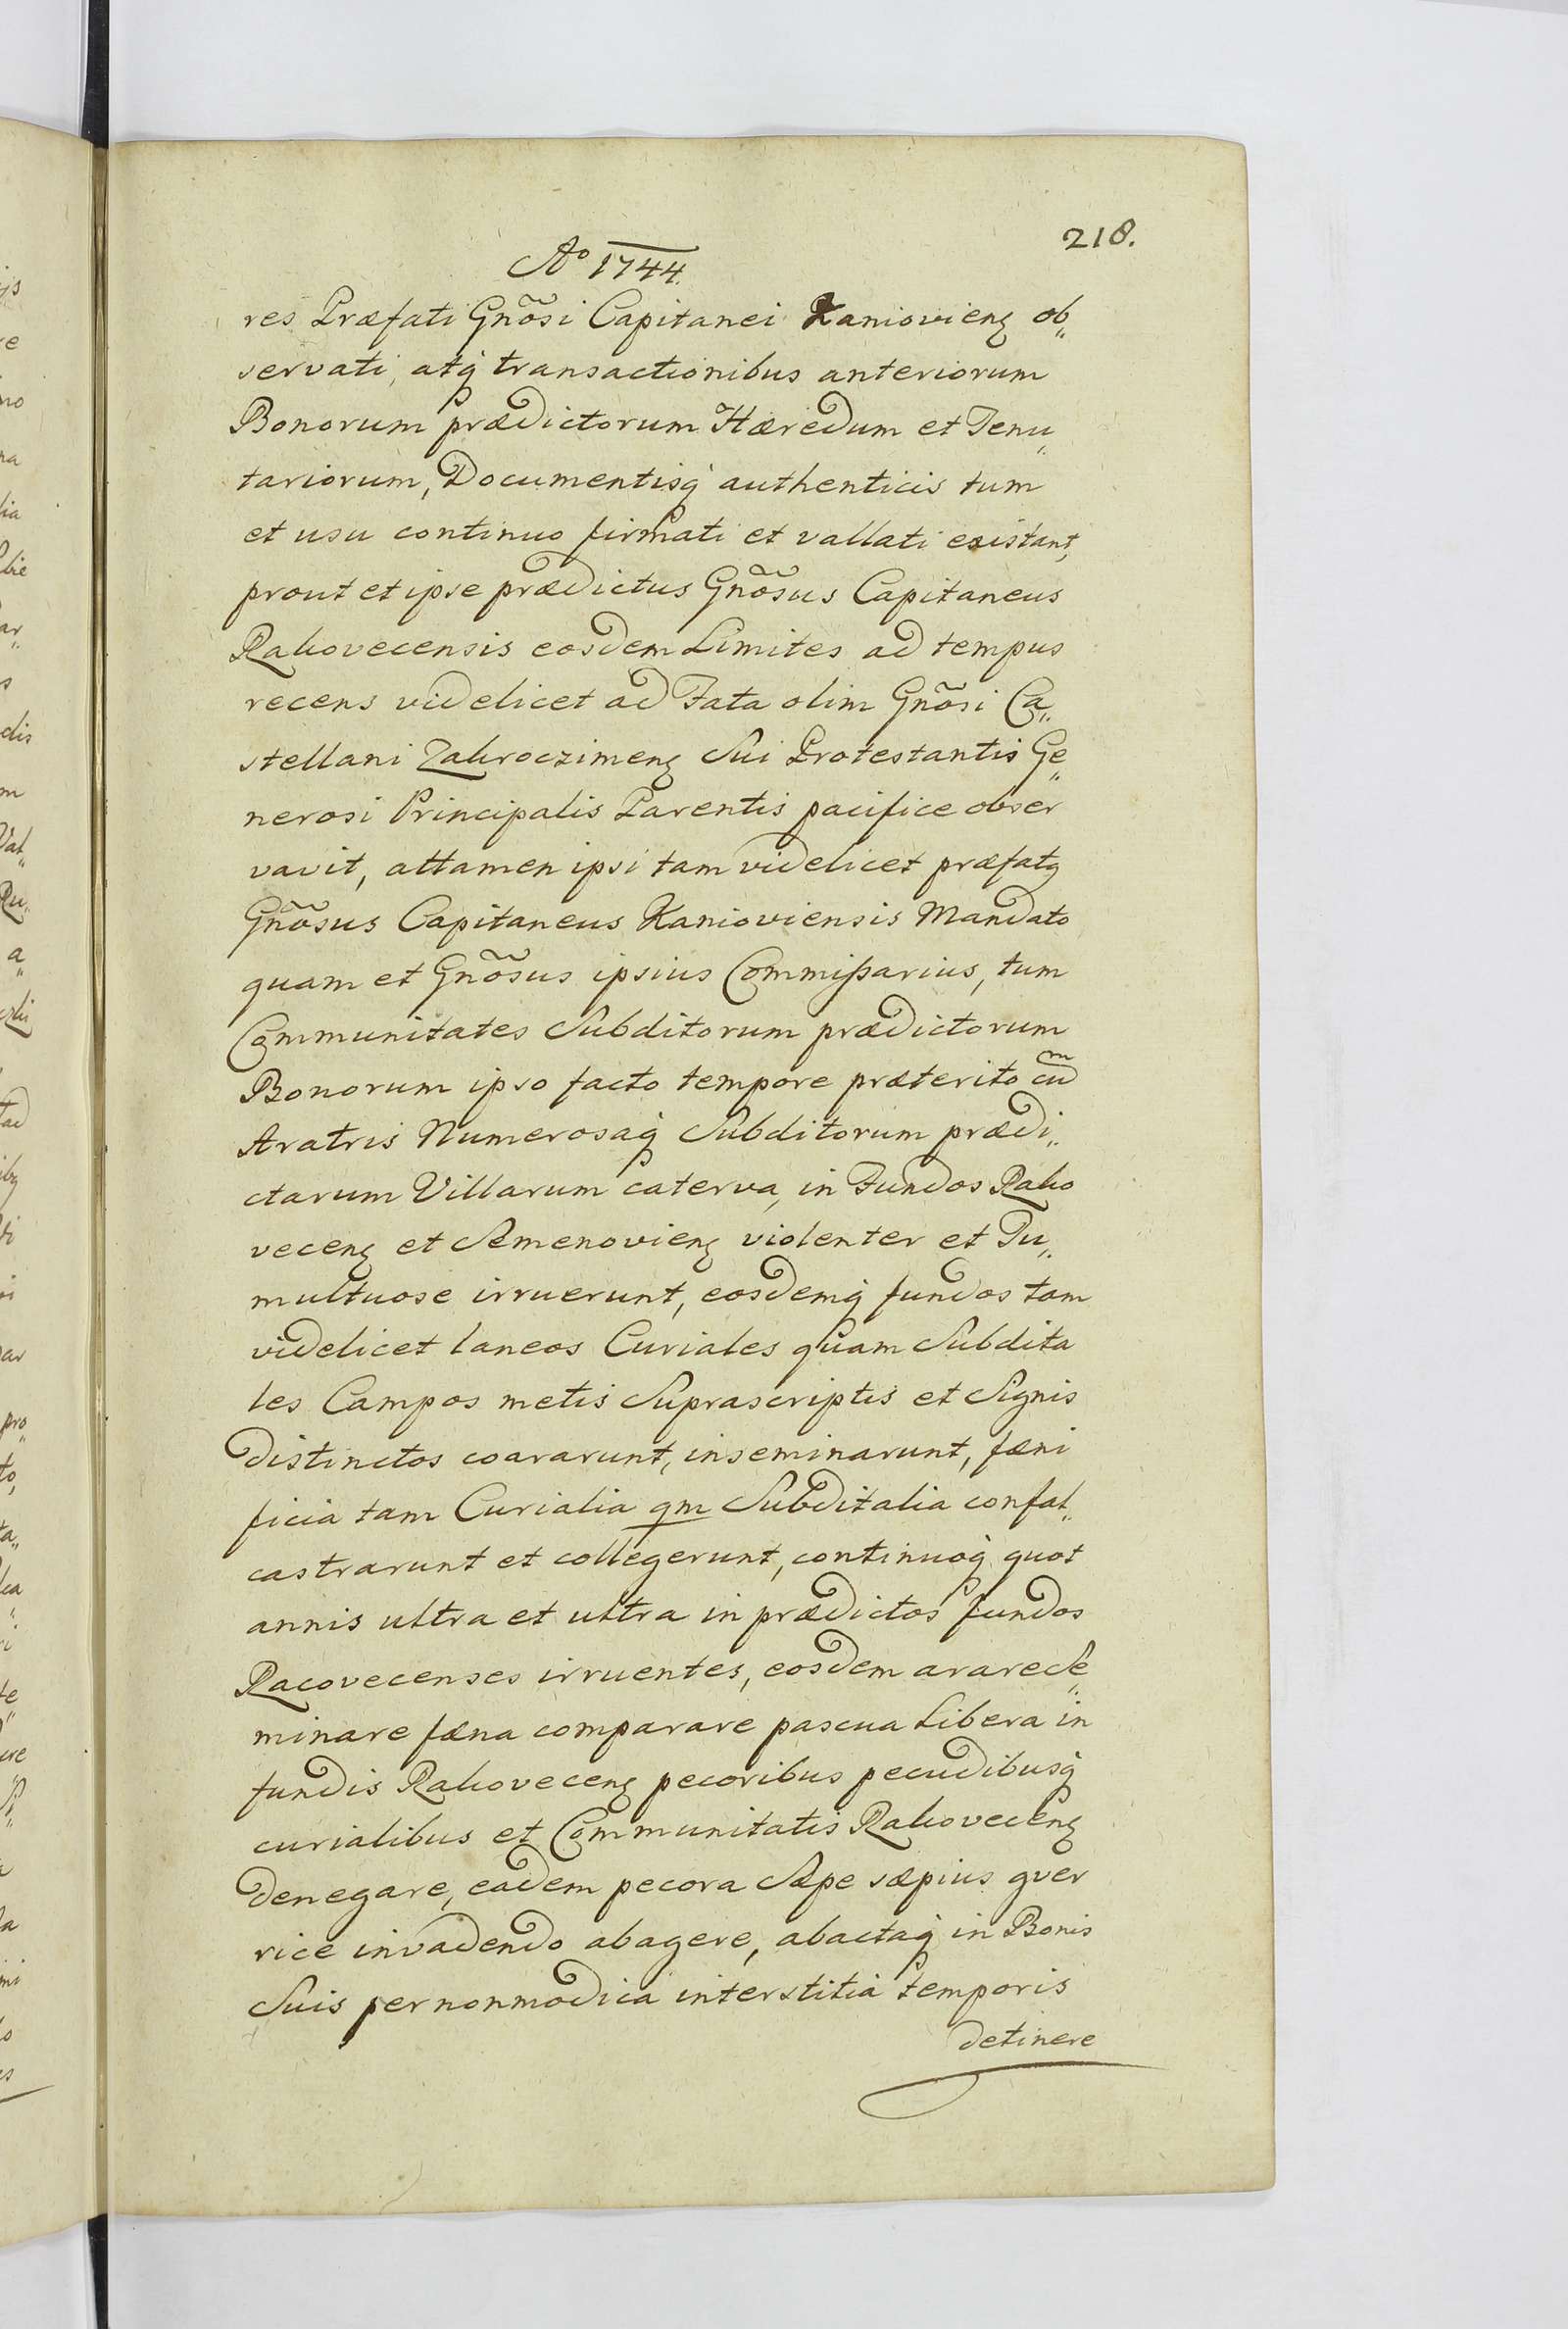 218.
Aº 1744.
res Præfati Gnõsi Capitanei Kaniovienꝫ ob„
servati, atq̀ transactionibus anteriorum
Bonorum prædictorum Hæredum et Tenu„
tariorum, Documentisq̀ authenticis tum
et usu continuo firmati et vallati existant,
prout et ipse prædictus Gnõsus Capitaneus
Rakovecensis eosdem Limites ad tempus
recens videlicet ad Fata olim Gnõsi Ca„
stellani Zakroczimenꝫ Sui Protestantis Ge„
nerosi Principalis Parentis pacifice obser
vavit, attamen ipsi tam videlicet præfatꝫ
Gnõsus Capitaneus Kanioviensis Mandato
quam et Gnõsus ipsius Commißarius, tum
Communitates Subditorum prædictorum
Bonorum ipso facto tempore præterito cum
Aratris Numerosaq̀ Subditorum prædi„
ctarum Villarum caterva, in Fundos Rako
vecenꝫ et Semenovienꝫ violenter et Tu„
multuose irruerunt, eosdemq̀ fundos tam
videlicet laneos Curiales quam Subdita
les Campos metis Suprascriptis et Signis
distinctos coararunt, inseminarunt, fæni
ficia tam Curialia qm Subditalia confal„
castrarunt et collegerunt, continuoq̀ quot
annis ultra et ultra in prædictos fundos
Racovecenses irruentes, eosdem arare Se„
minare fæna comparare pascua Libera in
fundis Rakovecenꝫ pecoribus pecudibusq̀
curialibus et Communitatis Rakovecenꝫ
denegare, eadem pecora Sæpe sæpius guer
rice invadendo abagere, abactaq̀ in Bonis
Suis per nonmodica interstitia temporis
detinere